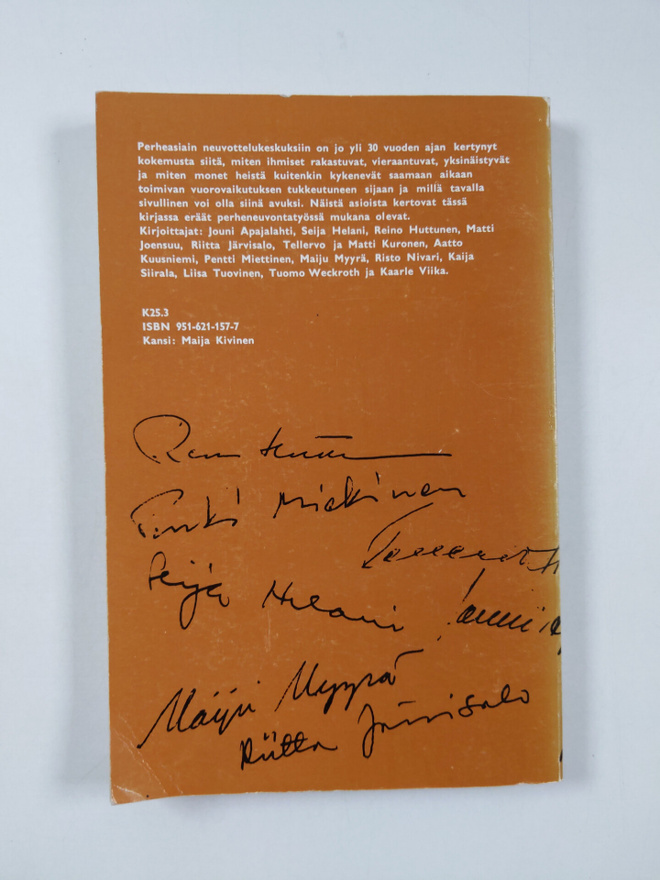 Perheasiain neuvottelukeskuksiin on jo yli 30 vuoden ajan kertynyt
kokemusta siitä, miten ihmiset rakastuvat, vieraantuvat, yksinäistyvät
ja miten monet heistä kuitenkin kykenevät saamaan aikaan
toimivan vuorovaikutuksen tukkeutuneen sijaan ja millä tavalla
sivullinen voi olla siinä avuksi. Näistä asioista kertovat tässä
kirjassa eräät perheneuvontatyössä mukana olevat.
Kirjoittajat: Jouni Apajalahti, Seija Helani, Reino Huttunen, Matti
Joensuu, Riitta Järvisalo, Tellervo ja Matti Kuronen, Aatto
Kuusniemi, Pentti Miettinen, Maiju Myyrä, Risto Nivari, Kaija
Siirala, Liisa Tuovinen, Tuomo Weckroth ja Kaarle Viika.
K25.3
ISBN 951-621-157-7
Kansi: Maija Kivinen
Pentti Miettinen
Seija Helani
Maiju Myyrä
Riitta Järvisalo